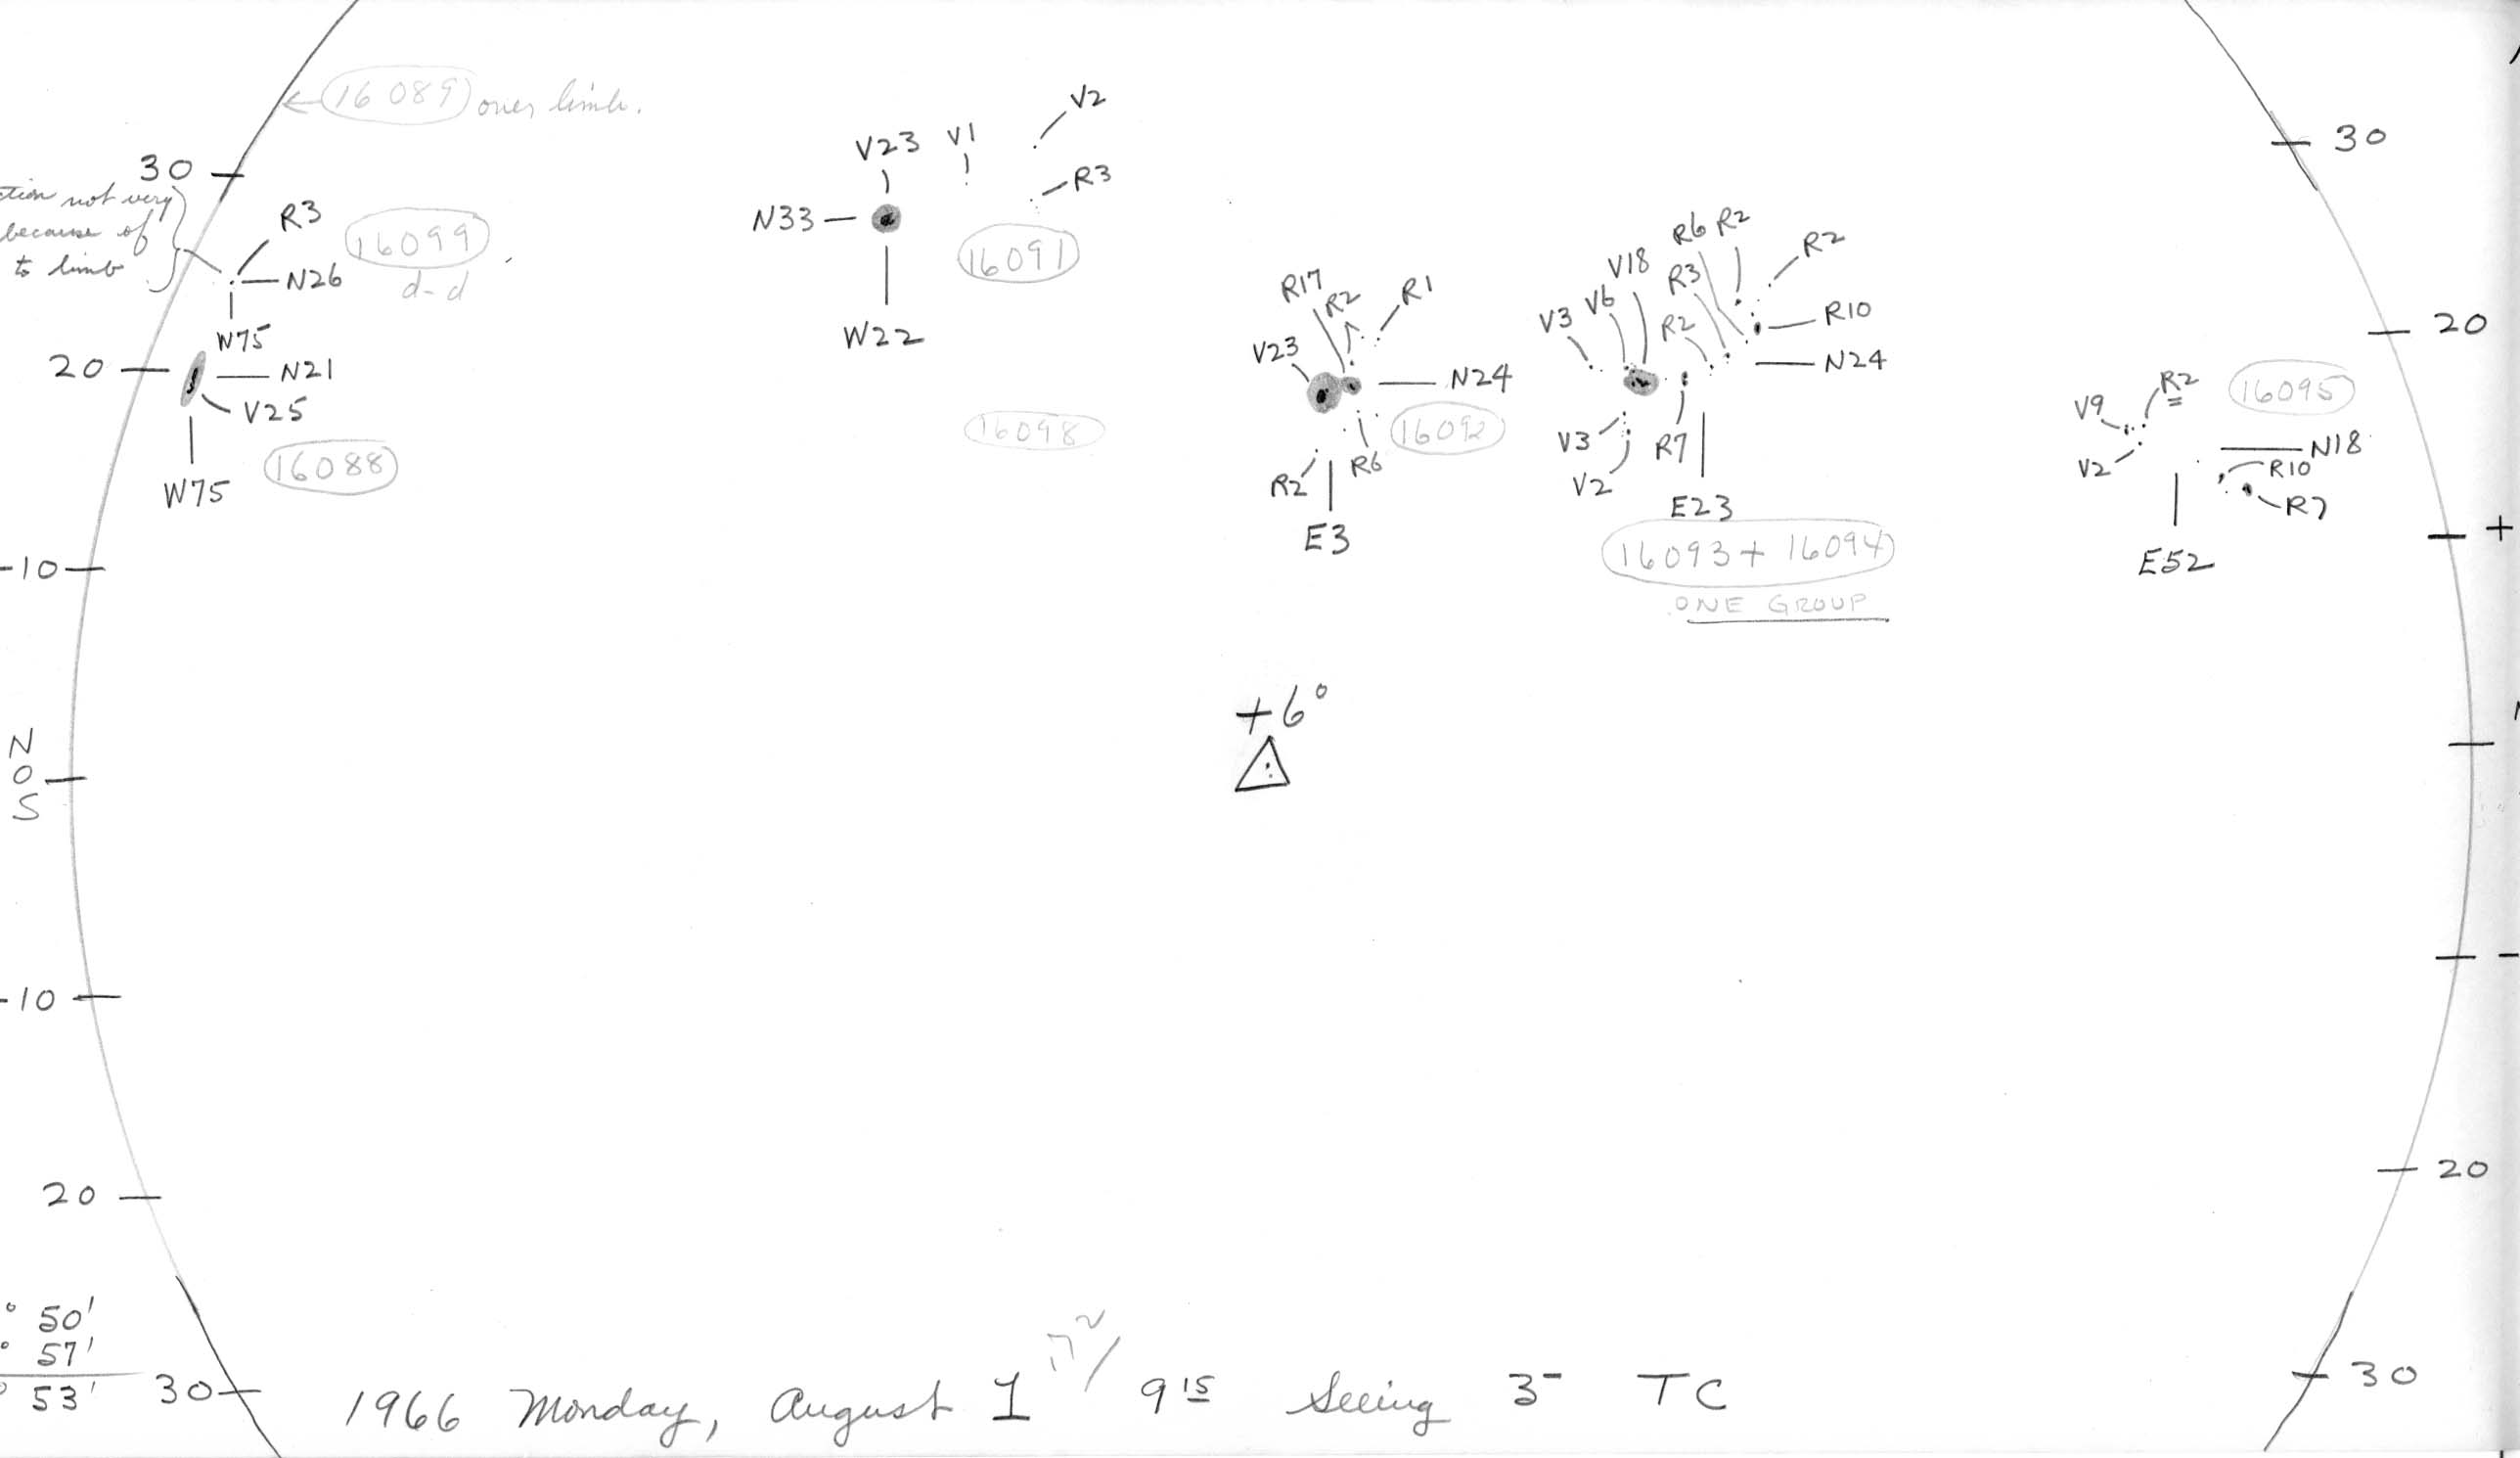 16089 over limb.
V2
V23 V1
30
30
tion not very
because of
to limb
R3
16099
N26
d-d
W75
R3
N33
16091
W22
R6 R2
R2
V18
R3
R17
R2
R1
V6
V3
R2
R10
20
V23
N24
N24
20
N21
V25
16088
W75
16098
16092
R2
R6
E3
V3
V2
R7
E23
16093 + 16094
ONE GROUP
R2
16095
V9
V2
N18
R10
R7
E52
+
-10
+6°
N
0
S
-10
-
20
20
° 50'
° 57'
° 53'
30
30
1966 Monday, August 1 17 2/ 9 15 Seeing 3- TC